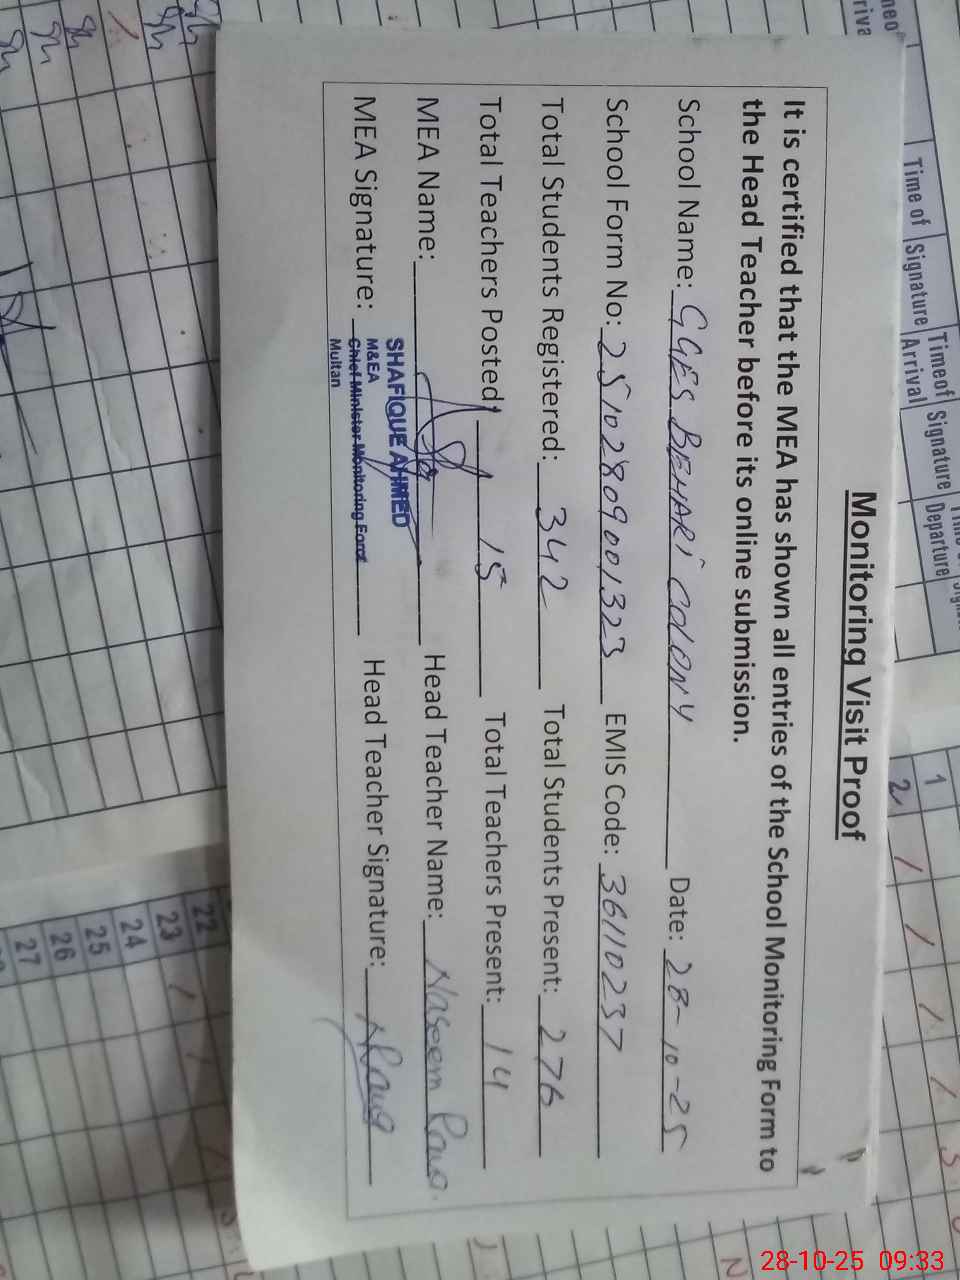 Monitoring Visit Proof
It is certified that the MEA has shown all entries of the School Monitoring Form to
the Head Teacher before its online submission.
School Name: GGES BEHARI COLONY Date: 28-10-25
School Form No: 25102809001323 EMIS Code: 36110237
Total Students Registered: 342 Total Students Present: 276
Total Teachers Posted: 15 Total Teachers Present: 14
MEA Name: Head Teacher Name: Naseem
MEA Signature: Head Teacher Signature:
SHAFIQUE AHMED
M&EA
Chief Minister Monitoring Force
Multan
Time of Signature Timeof Signature
Arrival Departure
1
2
22
23
24
25
26
27
28-10-25 09:33